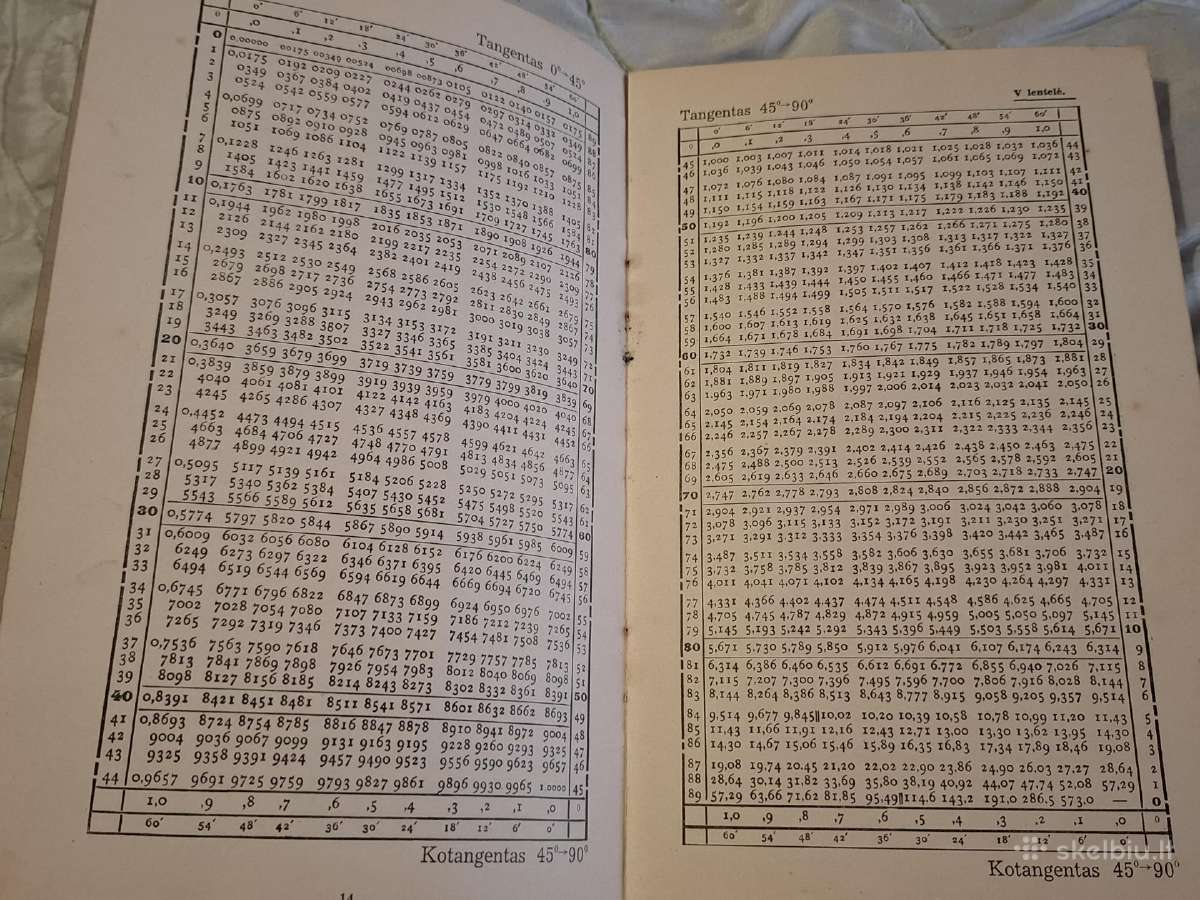 Tangentas 0°→45°
0' 6' 12' 18' 24' 30' 36' 42' 48' 54' 60'
0 ,0 ,1 ,2 ,3 ,4 ,5 ,6 ,7 ,8 ,9 1,0
0 0.00000 00175 00349 00524 00698 00873 0105 0122 0140 0157 0175 89
1 0,0175 0192 0209 0227 0244 0262 0279 0297 0314 0332 0349 88
2 0349 0367 0384 0402 0419 0437 0454 0472 0489 0507 0524 87
3 0524 0542 0559 0577 0594 0612 0629 0647 0664 0682 0699 86
4 0,0699 0717 0734 0752 0769 0787 0805 0822 0840 0857 0875 85
5 0875 0892 0910 0928 0945 0963 0981 0998 1016 1033 1051 84
6 1051 1069 1086 1104 1122 1139 1157 1175 1192 1210 1228 83
7 0,1228 1246 1263 1281 1299 1317 1334 1352 1370 1388 1405 82
8 1405 1423 1441 1459 1477 1495 1512 1530 1548 1566 1584 81
9 1584 1602 1620 1638 1655 1673 1691 1709 1727 1745 1763 80
10 0,1763 1781 1799 1817 1835 1853 1871 1890 1908 1926 1944 79
11 0,1944 1962 1980 1998 2016 2035 2053 2071 2089 2107 2126 78
12 2126 2144 2162 2180 2199 2217 2235 2254 2272 2290 2309 77
13 2309 2327 2345 2364 2382 2401 2419 2438 2456 2475 2493 76
14 0,2493 2512 2530 2549 2568 2586 2605 2623 2642 2661 2679 75
15 2679 2698 2717 2736 2754 2773 2792 2811 2830 2849 2867 74
16 2867 2886 2905 2924 2943 2962 2981 3000 3019 3038 3057 73
17 0,3057 3076 3096 3115 3134 3153 3172 3191 3211 3230 3249 72
18 3249 3269 3288 3307 3327 3346 3365 3385 3404 3424 3443 71
19 3443 3463 3482 3502 3522 3541 3561 3581 3600 3620 3640 70
20 0,3640 3659 3679 3699 3719 3739 3759 3779 3799 3819 3839 69
21 0,3839 3859 3879 3899 3919 3939 3959 3979 4000 4020 4040 68
22 4040 4061 4081 4101 4122 4142 4163 4183 4204 4224 4245 67
23 4245 4265 4286 4307 4327 4348 4369 4390 4411 4431 4452 66
24 0,4452 4473 4494 4515 4536 4557 4578 4599 4621 4642 4663 65
25 4663 4684 4706 4727 4748 4770 4791 4813 4834 4856 4877 64
26 4877 4899 4921 4942 4964 4986 5008 5029 5051 5073 5095 63
27 0,5095 5117 5139 5161 5184 5206 5228 5250 5272 5295 5317 62
28 5317 5340 5362 5384 5407 5430 5452 5475 5498 5520 5543 61
29 5543 5566 5589 5612 5635 5658 5681 5704 5727 5750 5774 60
30 0,5774 5797 5820 5844 5867 5890 5914 5938 5961 5985 6009 59
31 0,6009 6032 6056 6080 6104 6128 6152 6176 6200 6224 6249 58
32 6249 6273 6297 6322 6346 6371 6395 6420 6445 6469 6494 57
33 6494 6519 6544 6569 6594 6619 6644 6669 6694 6720 6745 56
34 0,6745 6771 6796 6822 6847 6873 6899 6924 6950 6976 7002 55
35 7002 7028 7054 7080 7107 7133 7159 7186 7212 7239 7265 54
36 7265 7292 7319 7346 7373 7400 7427 7454 7481 7508 7536 53
37 0,7536 7563 7590 7618 7646 7673 7701 7729 7757 7785 7813 52
38 7813 7841 7869 7898 7926 7954 7983 8012 8040 8069 8098 51
39 8098 8127 8156 8185 8214 8243 8273 8302 8332 8361 8391 50
40 0,8391 8421 8451 8481 8511 8541 8571 8601 8632 8662 8693 49
41 0,8693 8724 8754 8785 8816 8847 8878 8910 8941 8972 9004 48
42 9004 9036 9067 9099 9131 9163 9195 9228 9260 9293 9325 47
43 9325 9358 9391 9424 9457 9490 9523 9556 9590 9623 9657 46
44 0,9657 9691 9725 9759 9793 9827 9861 9896 9930 9965 1.0000 45
1,0 ,9 ,8 ,7 ,6 ,5 ,4 ,3 ,2 ,1 ,0 0
60' 54' 48' 42' 36' 30' 24' 18' 12' 6' 0'
Kotangentas 45°→90°
14
V lentelė.
Tangentas 45°→90°
0' 6' 12' 18' 24' 30' 36' 42' 48' 54' 60'
0 ,0 ,1 ,2 ,3 ,4 ,5 ,6 ,7 ,8 ,9 1,0
45 1,000 1,003 1,007 1,011 1,014 1,018 1,021 1,025 1,028 1,032 1,036 44
46 1,036 1,039 1,043 1,046 1,050 1,054 1,057 1,061 1,065 1,069 1,072 43
47 1,072 1,076 1,080 1,084 1,087 1,091 1,095 1,099 1,103 1,107 1,111 42
48 1,111 1,115 1,118 1,122 1,126 1,130 1,134 1,138 1,142 1,146 1,150 41
49 1,150 1,154 1,159 1,163 1,167 1,171 1,175 1,179 1,183 1,188 1,192 40
50 1,192 1,196 1,200 1,205 1,209 1,213 1,217 1,222 1,226 1,230 1,235 39
51 1,235 1,239 1,244 1,248 1,253 1,257 1,262 1,266 1,271 1,275 1,280 38
52 1,280 1,285 1,289 1,294 1,299 1,303 1,308 1,313 1,317 1,322 1,327 37
53 1,327 1,332 1,337 1,342 1,347 1,351 1,356 1,361 1,366 1,371 1,376 36
54 1,376 1,381 1,387 1,392 1,397 1,402 1,407 1,412 1,418 1,423 1,428 35
55 1,428 1,433 1,439 1,444 1,450 1,455 1,460 1,466 1,471 1,477 1,483 34
56 1,483 1,488 1,494 1,499 1,505 1,511 1,517 1,522 1,528 1,534 1,540 33
57 1,540 1,546 1,552 1,558 1,564 1,570 1,576 1,582 1,588 1,594 1,600 32
58 1,600 1,607 1,613 1,619 1,625 1,632 1,638 1,645 1,651 1,658 1,664 31
59 1,664 1,671 1,678 1,684 1,691 1,698 1,704 1,711 1,718 1,725 1,732 30
60 1,732 1,739 1,746 1,753 1,760 1,767 1,775 1,782 1,789 1,797 1,804 29
61 1,804 1,811 1,819 1,827 1,834 1,842 1,849 1,857 1,865 1,873 1,881 28
62 1,881 1,889 1,897 1,905 1,913 1,921 1,929 1,937 1,946 1,954 1,963 27
63 1,963 1,971 1,980 1,988 1,997 2,006 2,014 2,023 2,032 2,041 2,050 26
64 2,050 2,059 2,069 2,078 2,087 2,097 2,106 2,116 2,125 2,135 2,145 25
65 2,145 2,154 2,164 2,174 2,184 2,194 2,204 2,215 2,225 2,236 2,246 24
66 2,246 2,257 2,267 2,278 2,289 2,300 2,311 2,322 2,333 2,344 2,356 23
67 2,356 2,367 2,379 2,391 2,402 2,414 2,426 2,438 2,450 2,463 2,475 22
68 2,475 2,488 2,500 2,513 2,526 2,539 2,552 2,565 2,578 2,592 2,605 21
69 2,605 2,619 2,633 2,646 2,660 2,675 2,689 2,703 2,718 2,733 2,747 20
70 2,747 2,762 2,778 2,793 2,808 2,824 2,840 2,856 2,872 2,888 2,904 19
71 2,904 2,921 2,937 2,954 2,971 2,989 3,006 3,024 3,042 3,060 3,078 18
72 3,078 3,096 3,115 3,133 3,152 3,172 3,191 3,211 3,230 3,251 3,271 17
73 3,271 3,291 3,312 3,333 3,354 3,376 3,398 3,420 3,442 3,465 3,487 16
74 3,487 3,511 3,534 3,558 3,582 3,606 3,630 3,655 3,681 3,706 3,732 15
75 3,732 3,758 3,785 3,812 3,839 3,867 3,895 3,923 3,952 3,981 4,011 14
76 4,011 4,041 4,071 4,102 4,134 4,165 4,198 4,230 4,264 4,297 4,331 13
77 4,331 4,366 4,402 4,437 4,474 4,511 4,548 4,586 4,625 4,665 4,705 12
78 4,705 4,745 4,787 4,829 4,872 4,915 4,959 5,005 5,050 5,097 5,145 11
79 5,145 5,193 5,242 5,292 5,343 5,396 5,449 5,503 5,558 5,614 5,671 10
80 5,671 5,730 5,789 5,850 5,912 5,976 6,041 6,107 6,174 6,243 6,314 9
81 6,314 6,386 6,460 6,535 6,612 6,691 6,772 6,855 6,940 7,026 7,115 8
82 7,115 7,207 7,300 7,396 7,495 7,596 7,700 7,806 7,916 8,028 8,144 7
83 8,144 8,264 8,386 8,513 8,643 8,777 8,915 9,058 9,205 9,357 9,514 6
84 9,514 9,677 9,845 10,02 10,20 10,39 10,58 10,78 10,99 11,20 11,43 5
85 11,43 11,66 11,91 12,16 12,43 12,71 13,00 13,30 13,62 13,95 14,30 4
86 14,30 14,67 15,06 15,46 15,89 16,35 16,83 17,34 17,89 18,46 19,08 3
87 19,08 19,74 20,45 21,20 22,02 22,90 23,86 24,90 26,03 27,27 28,64 2
88 28,64 30,14 31,82 33,69 35,80 38,19 40,92 44,07 47,74 52,08 57,29 1
89 57,29 63,66 71,62 81,85 95,49 114,6 143,2 191,0 286,5 573,0 — 0
1,0 ,9 ,8 ,7 ,6 ,5 ,4 ,3 ,2 ,1 ,0 0
60' 54' 48' 42' 36' 30' 24' 18' 12' 6' 0'
Kotangentas 45°→90°
skelbiu.lt